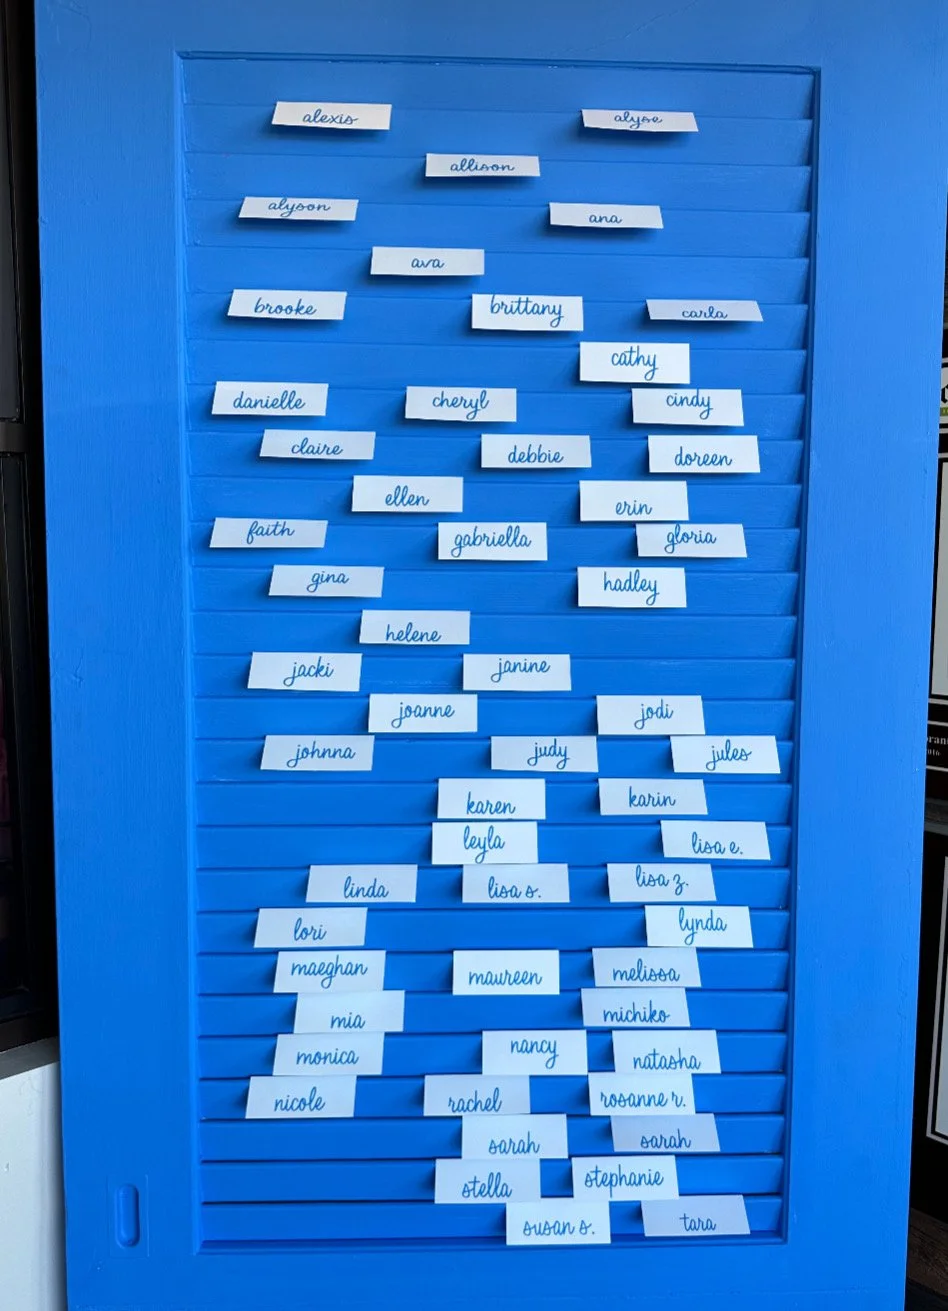 alexis
alyse
allison
alyson
ana
ava
brooke
brittany
carla
cathy
danielle
cheryl
cindy
claire
debbie
doreen
ellen
erin
faith
gabriella
gloria
gina
hadley
helene
jacki
janine
joanne
jodi
johnna
judy
jules
karen
karin
leyla
lisa e.
linda
lisa s.
lisa z.
lori
lynda
maeghan
maureen
melissa
mia
michiko
monica
nancy
natasha
nicole
rachel
rosanne r.
sarah
sarah
stella
stephanie
susan s.
tara